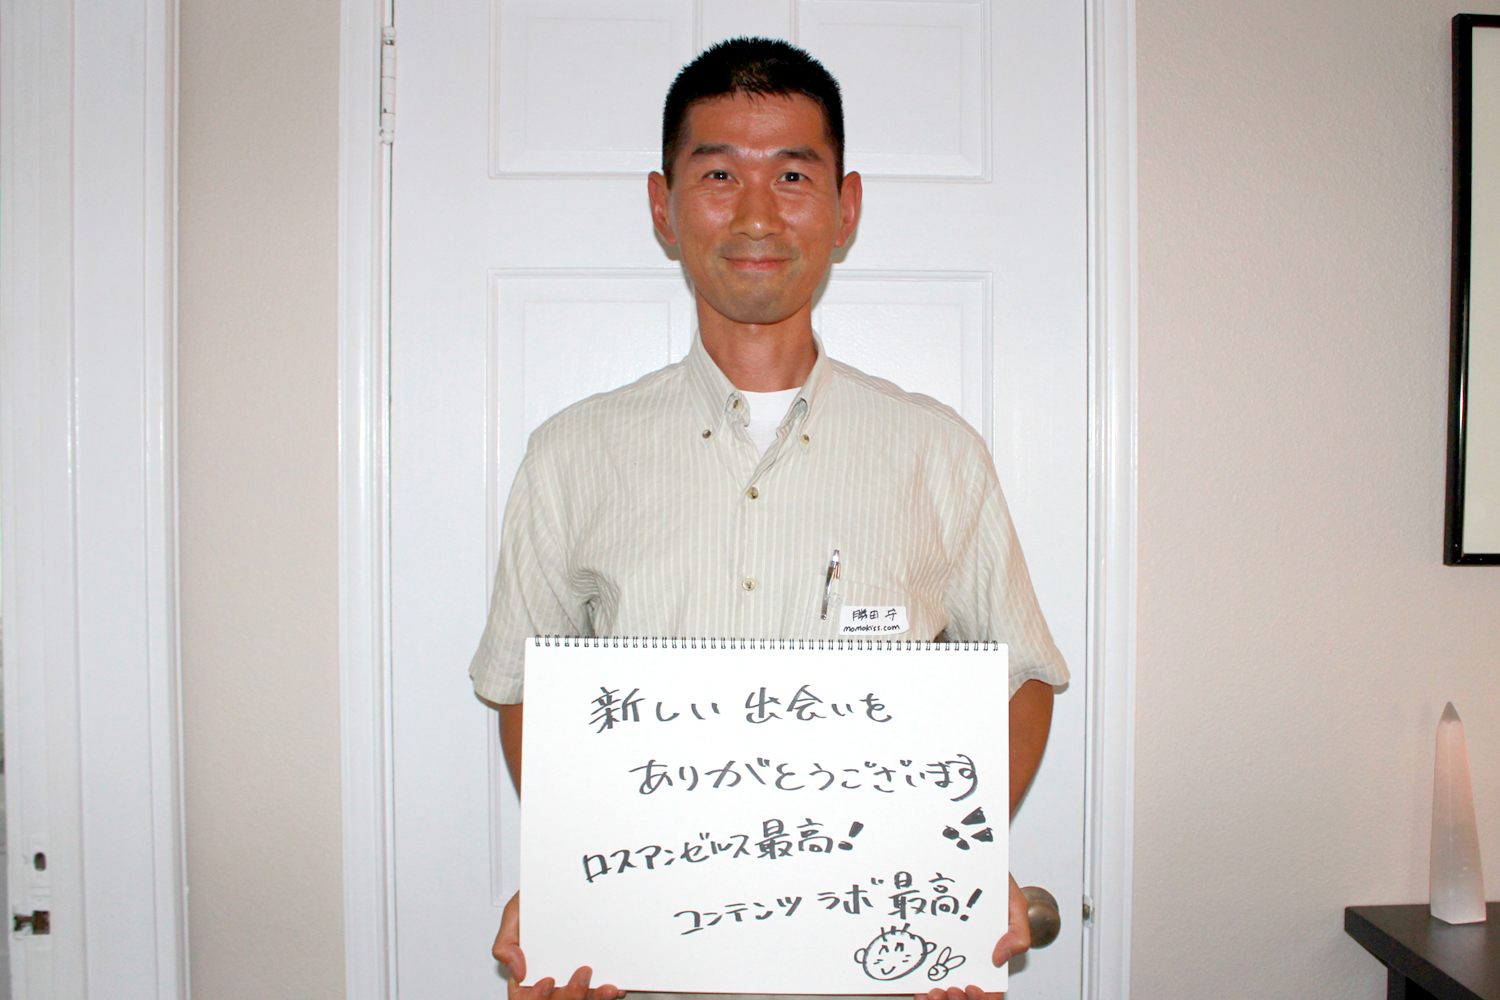 勝田 守
momokiss.com
新しい出会いを
ありがとうございます
ロスアンゼルス最高!
コンテンツ ラボ 最高!